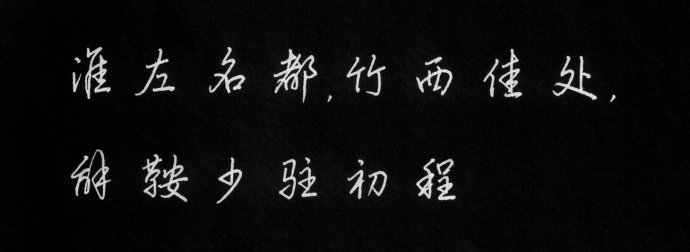 淮左名都,竹西佳处,
解鞍少驻初程